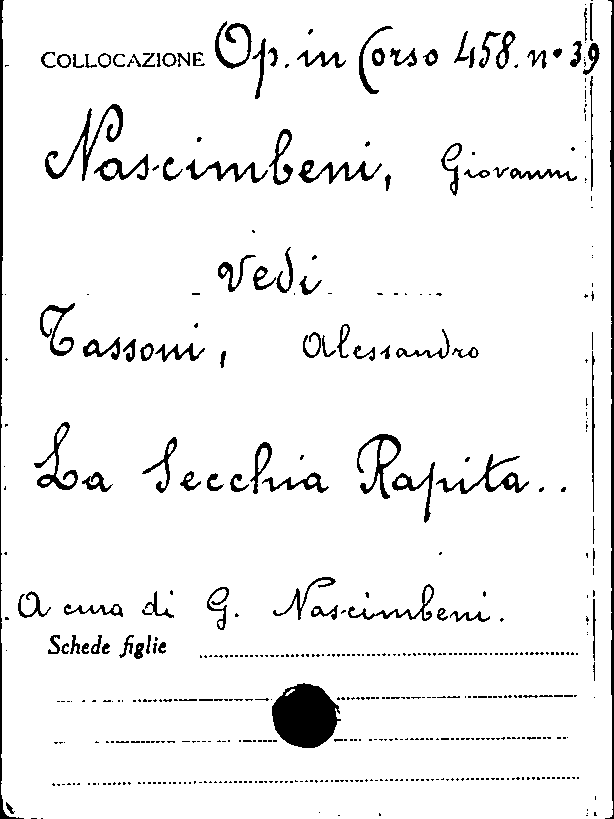 COLLOCAZIONE Op. in Corso 458. n° 39
Nascimbeni, Giovanni
Vedi
Tassoni, Alessandro
La Secchia Rapita..
A cura di G. Nascimbeni.
Schede figlie